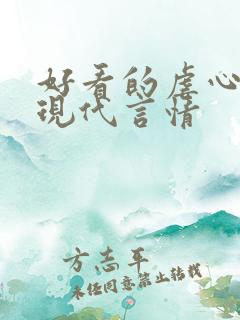 好看的虐心
現代言情
方志平
未经同意禁止转载